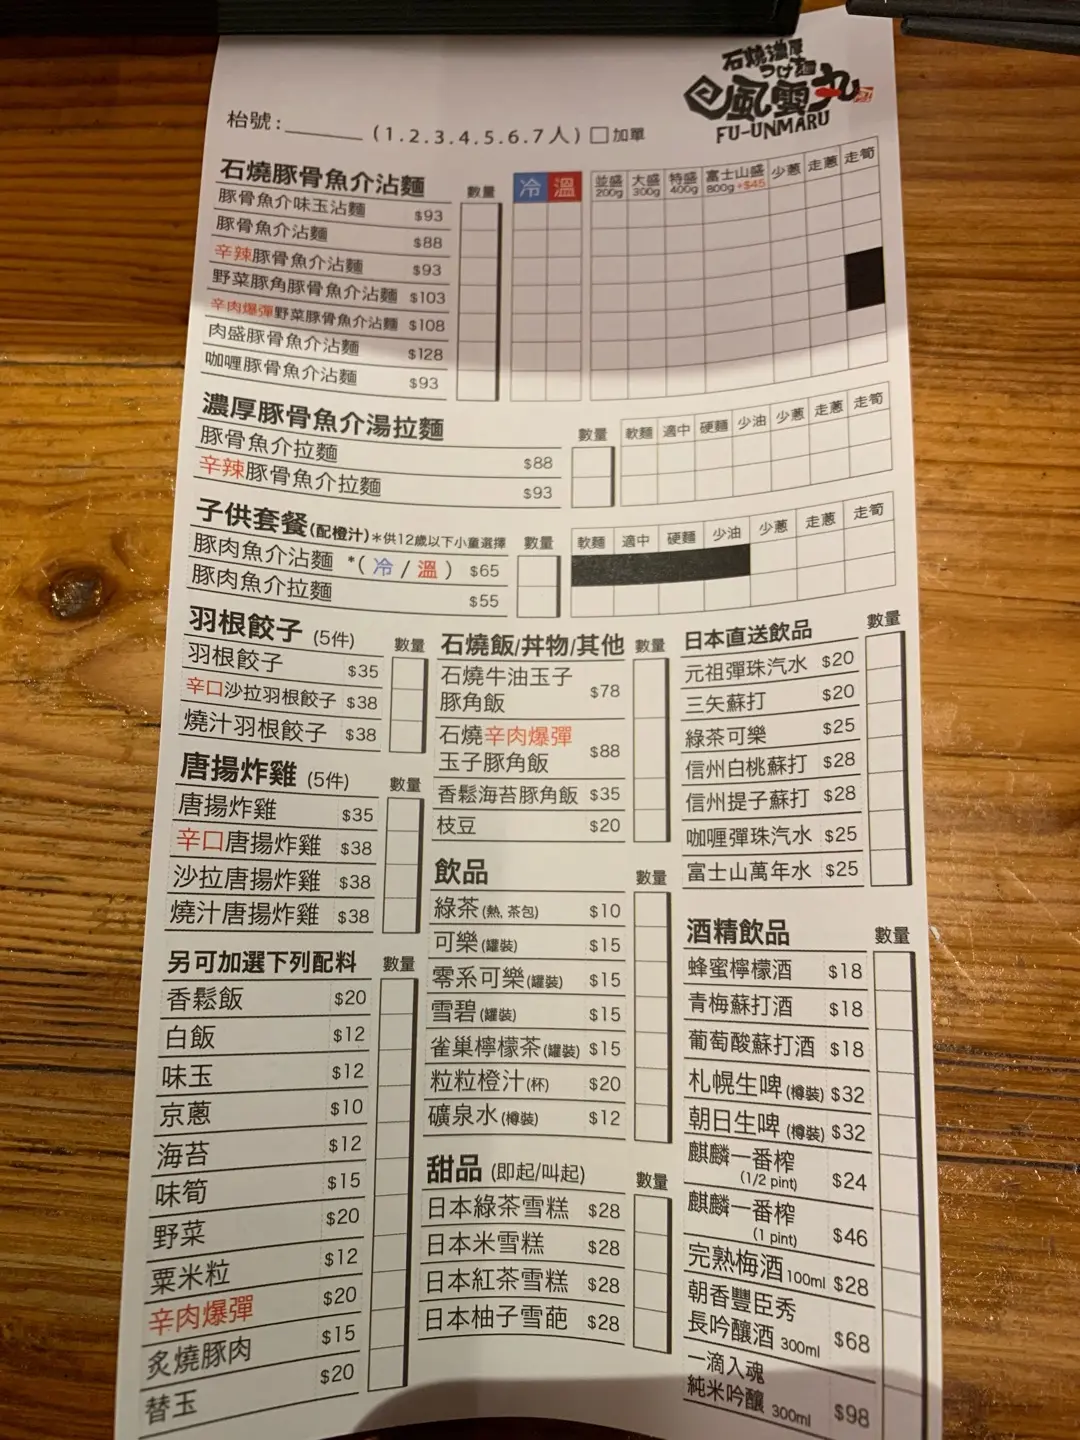 石燒濃厚
つけ麺
風雲丸
FU-UNMARU
枱號:________ (1.2.3.4.5.6.7人) □加單
石燒豚骨魚介沾麵 數量 冷 溫 並盛200g 大盛300g 特盛400g 富士山盛800g+$45 少蔥 走蔥 走筍
豚骨魚介味玉沾麵 $93
豚骨魚介沾麵 $88
辛辣豚骨魚介沾麵 $93
野菜豚角豚骨魚介沾麵 $103
辛肉爆彈野菜豚骨魚介沾麵 $108
肉盛豚骨魚介沾麵 $128
咖喱豚骨魚介沾麵 $93
濃厚豚骨魚介湯拉麵 數量 軟麵 適中 硬麵 少油 少蔥 走蔥 走筍
豚骨魚介拉麵 $88
辛辣豚骨魚介拉麵 $93
子供套餐(配橙汁)*供12歲以下小童選擇 數量 軟麵 適中 硬麵 少油 少蔥 走蔥 走筍
豚肉魚介沾麵 *(冷/溫) $65
豚肉魚介拉麵 $55
羽根餃子 (5件) 數量
羽根餃子 $35
辛口沙拉羽根餃子 $38
燒汁羽根餃子 $38
唐揚炸雞 (5件) 數量
唐揚炸雞 $35
辛口唐揚炸雞 $38
沙拉唐揚炸雞 $38
燒汁唐揚炸雞 $38
另可加選下列配料 數量
香鬆飯 $20
白飯 $12
味玉 $12
京蔥 $10
海苔 $12
味筍 $15
野菜 $20
粟米粒 $12
辛肉爆彈 $20
炙燒豚肉 $15
替玉 $20
石燒飯/丼物/其他 數量
石燒牛油玉子
豚角飯 $78
石燒辛肉爆彈
玉子豚角飯 $88
香鬆海苔豚角飯 $35
枝豆 $20
飲品 數量
綠茶(熱, 茶包) $10
可樂(罐裝) $15
零系可樂(罐裝) $15
雪碧(罐裝) $15
雀巢檸檬茶(罐裝) $15
粒粒橙汁(杯) $20
礦泉水(樽裝) $12
甜品 (即起/叫起) 數量
日本綠茶雪糕 $28
日本米雪糕 $28
日本紅茶雪糕 $28
日本柚子雪葩 $28
日本直送飲品 數量
元祖彈珠汽水 $20
三矢蘇打 $20
綠茶可樂 $25
信州白桃蘇打 $28
信州提子蘇打 $28
咖喱彈珠汽水 $25
富士山萬年水 $25
酒精飲品 數量
蜂蜜檸檬酒 $18
青梅蘇打酒 $18
葡萄酸蘇打酒 $18
札幌生啤(樽裝) $32
朝日生啤(樽裝) $32
麒麟一番榨
(1/2 pint) $24
麒麟一番榨
(1 pint) $46
完熟梅酒100ml $28
朝香豐臣秀
長吟釀酒 300ml $68
一滴入魂
純米吟釀 300ml $98